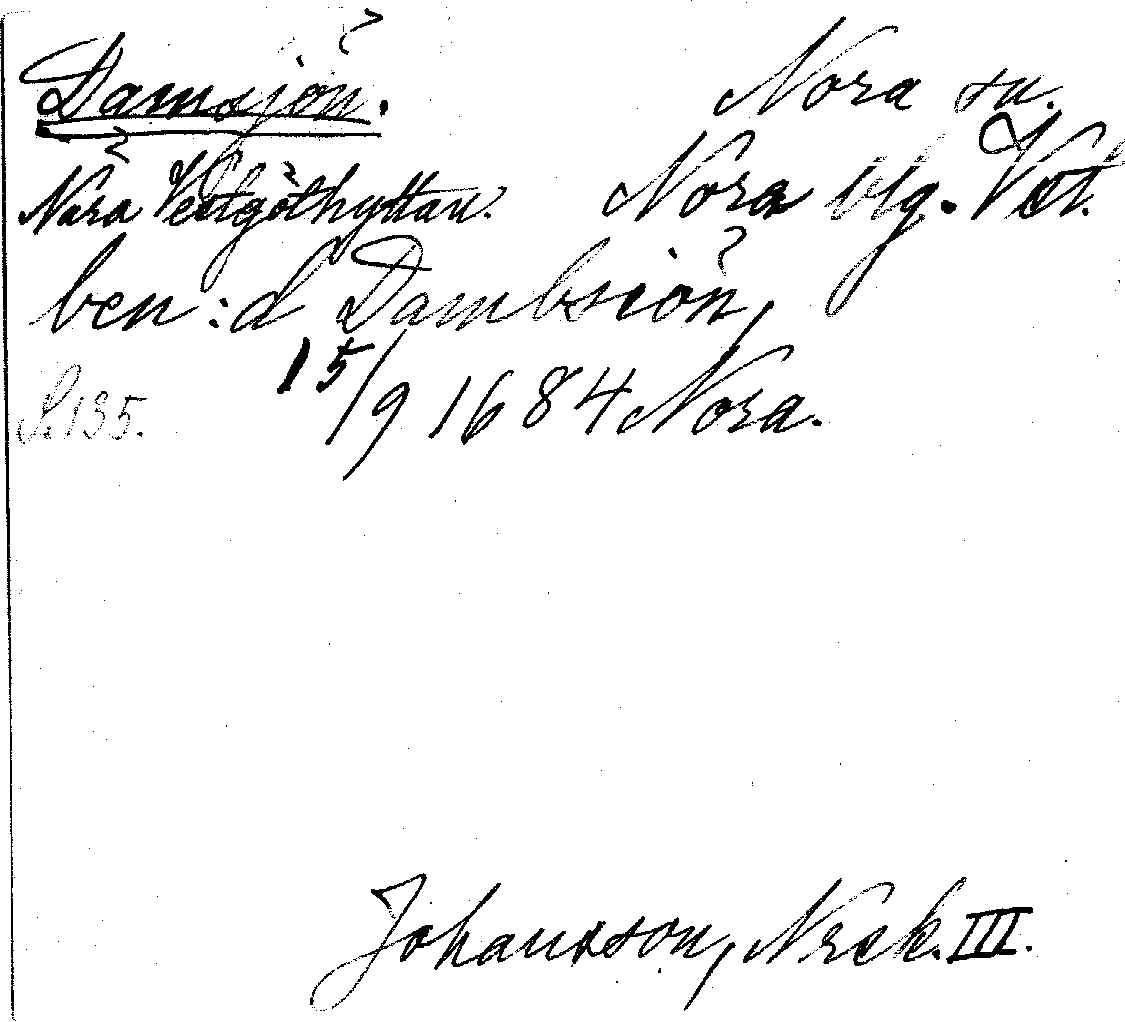 Damsjön.
Nora sn.
Nära Vestgöthyttan.
Nora blg. Vst.
ben:d Dambsiön,
S. 135.
15/9 1684 Nora.
Johansson, Nrck. III.